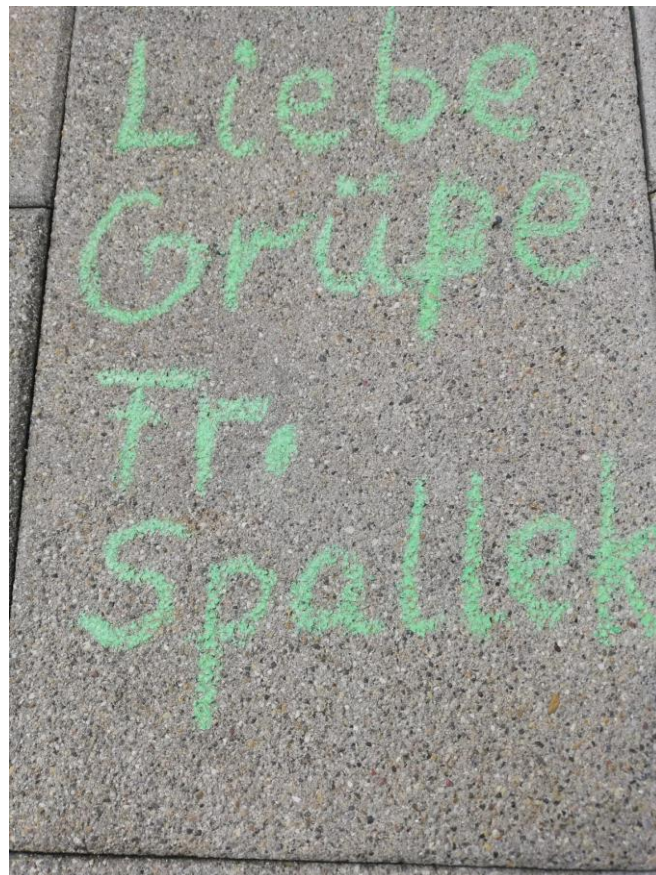 Liebe
Grüße
Fr.
Spallek